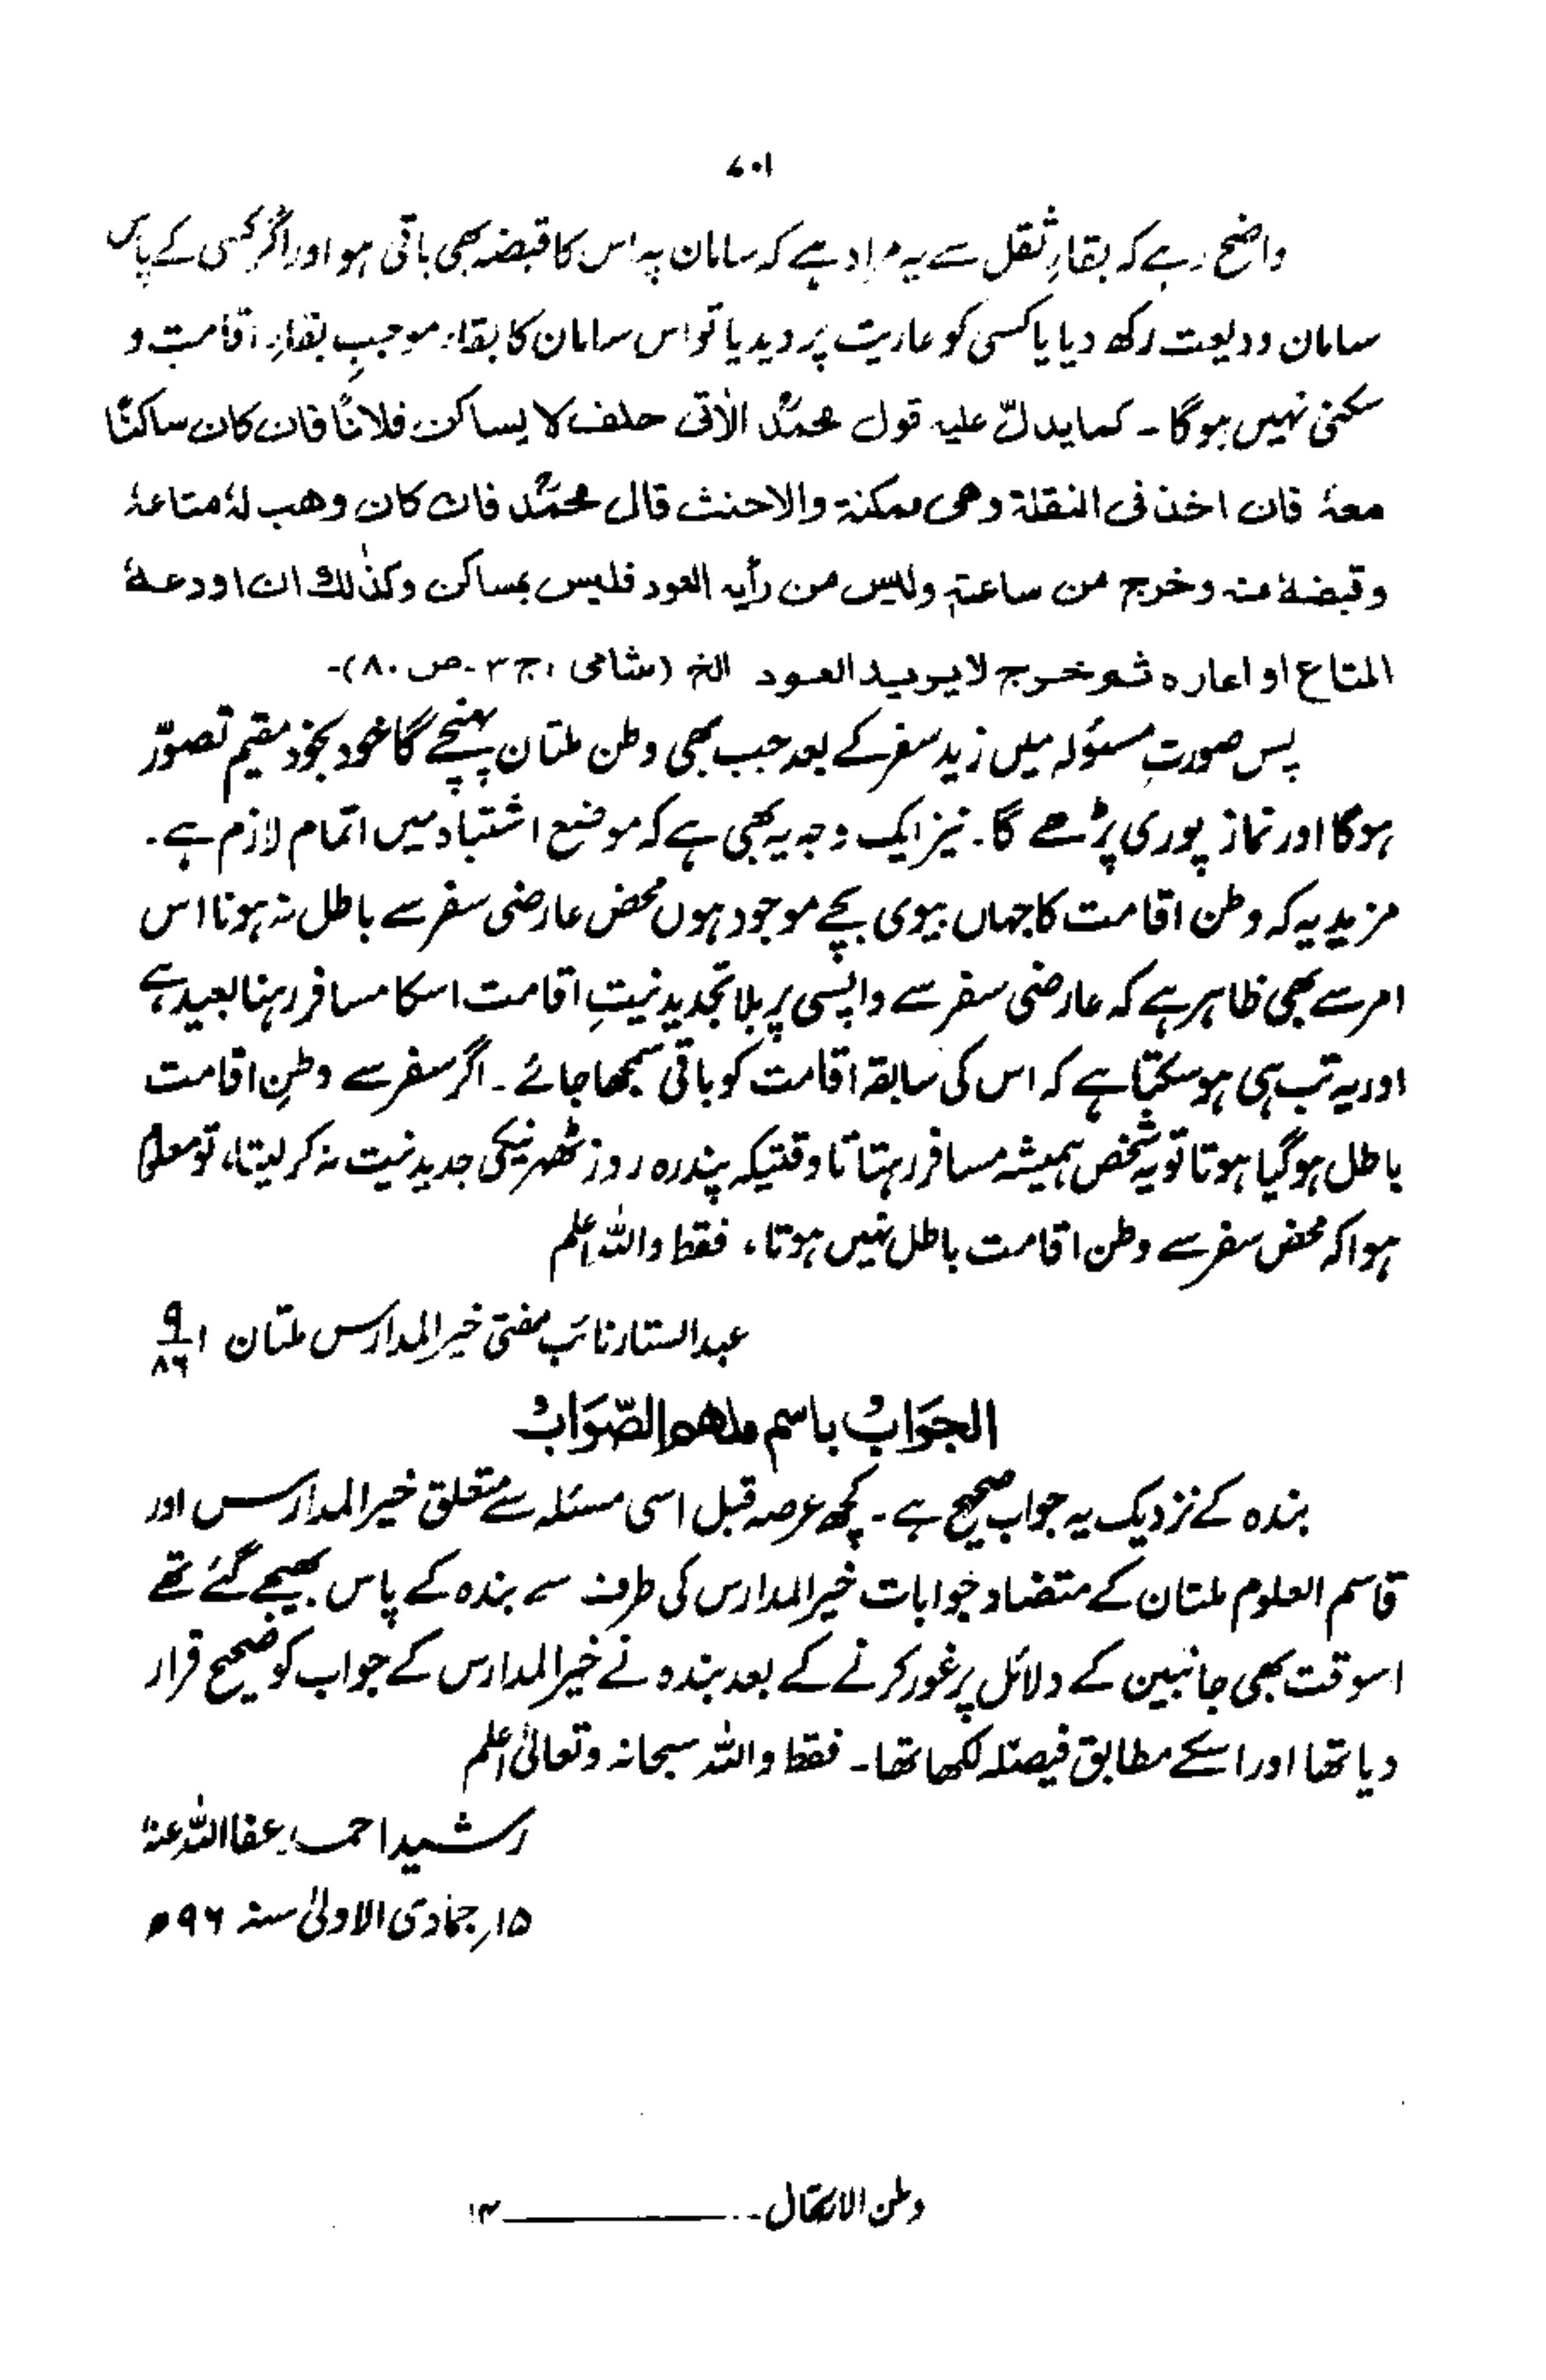 ۷۰۱
واضح رہے کہ بقاءِ ثقل سے یہ مراد ہے کہ سامان پہ اس کا قبضہ بھی باقی ہو اور اگر کسی کے پاس
سامان ودیعت رکھ دیا یا کسی کو عاریت پر دیدیا تو اس سامان کا بقاء موجبِ بقاءِ اقامت و
سکنیٰ نہیں ہوگا ۔ کما یدلّ علیہ قول محمدؒ الاٰتی حلف لا یساکن فلانًا فان کان ساکنًا
معہٗ فان اخذ فی النقلۃ وھی ممکنۃ والاحنث قال محمدؒ فان کان وھب لہٗ متاعہٗ
وقبضہٗ منہ وخرج من ساعتہٖ ولیس من رأیہ العود فلیس بمساکن وکذٰلک ان اودعہٗ
المتاع او اعارہ ثم خرج لا یرید العود الخ (شامی، ج ۳ ۔ ص ۸۰)۔
پس صورتِ مسئولہ میں زید سفر کے بعد جب بھی وطن ملتان پہنچے گا خود بخود مقیم تصوّر
ہوگا اور نماز پوری پڑھے گا۔ نیز ایک وجہ یہ بھی ہے کہ موضع اشتباہ میں اتمام لازم ہے۔
مزید یہ کہ وطن اقامت کا جہاں بیوی بچے موجود ہوں محض عارضی سفر سے باطل نہ ہونا اس
امر سے بھی ظاہر ہے کہ عارضی سفر سے واپسی پر بلا تجدید نیتِ اقامت اسکا مسافر رہنا بعید ہے
اور یہ تب ہی ہوسکتا ہے کہ اس کی سابقہ اقامت کو باقی سمجھا جائے ۔ اگر سفر سے وطنِ اقامت
باطل ہو گیا ہوتا تو یہ شخص ہمیشہ مسافر رہتا تا وقتیکہ پندرہ روز ٹھہرنیکی جدید نیت نہ کر لیتا، تو معلوم
ہوا کہ محض سفر سے وطن اقامت باطل نہیں ہوتا، فقط واللہ اعلم
عبد الستار نائب مفتی خیر المدارس ملتان ۱ ۹/۸۶
الجَوَابُ باسم ملھم الصّوَابْ
بندہ کے نزدیک یہ جواب صحیح ہے ۔ کچھ عرصہ قبل اسی مسئلہ سے متعلق خیر المدارس اور
قاسم العلوم ملتان کے متضاد جوابات خیر المدارس کی طرف سے بندہ کے پاس بھیجے گئے تھے
اسوقت بھی جانبین کے دلائل پر غور کرنے کے بعد بندہ نے خیر المدارس کے جواب کو صحیح قرار
دیا تھا اور اسکے مطابق فیصلہ لکھا تھا ۔ فقط واللہ سبحانہ وتعالیٰ اعلم
رشید احمد عفا اللہ عنہ
۱۵؍ جمادی الاولیٰ سنہ ۹۶ھ
وطن الارتحال ــــــــــــ ۱۳